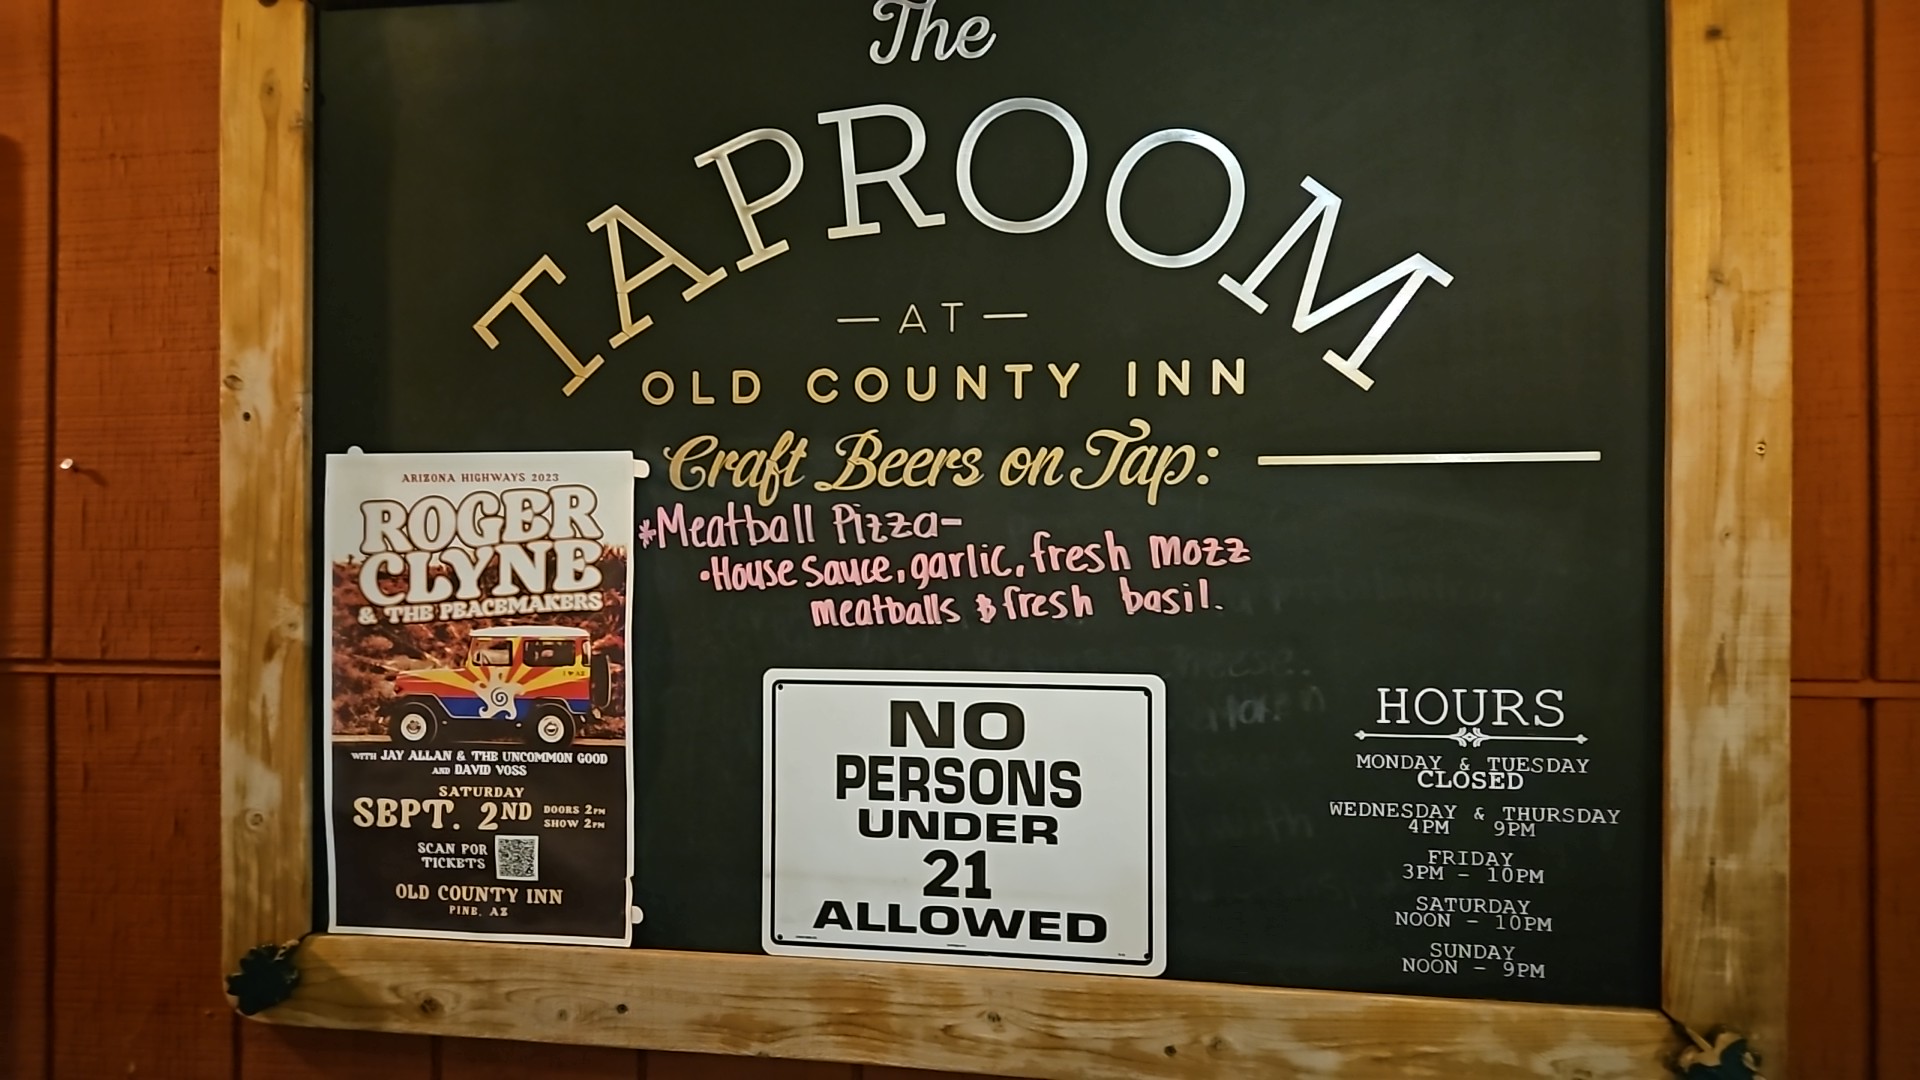 The
TAPROOM
— AT —
OLD COUNTY INN
Craft Beers on Tap:
*Meatball Pizza-
•House Sauce, garlic, fresh mozz
meatballs & fresh basil.
ARIZONA HIGHWAYS 2023
ROGER
CLYNE
& THE PEACEMAKERS
I ♥ AZ
WITH JAY ALLAN & THE UNCOMMON GOOD
AND DAVID VOSS
SATURDAY
SEPT. 2ND
DOORS 2PM
SHOW 2PM
SCAN FOR
TICKETS
OLD COUNTY INN
PINE, AZ
NO
PERSONS
UNDER
21
ALLOWED
HOURS
MONDAY & TUESDAY
CLOSED
WEDNESDAY & THURSDAY
4PM 9PM
FRIDAY
3PM - 10PM
SATURDAY
NOON - 10PM
SUNDAY
NOON - 9PM